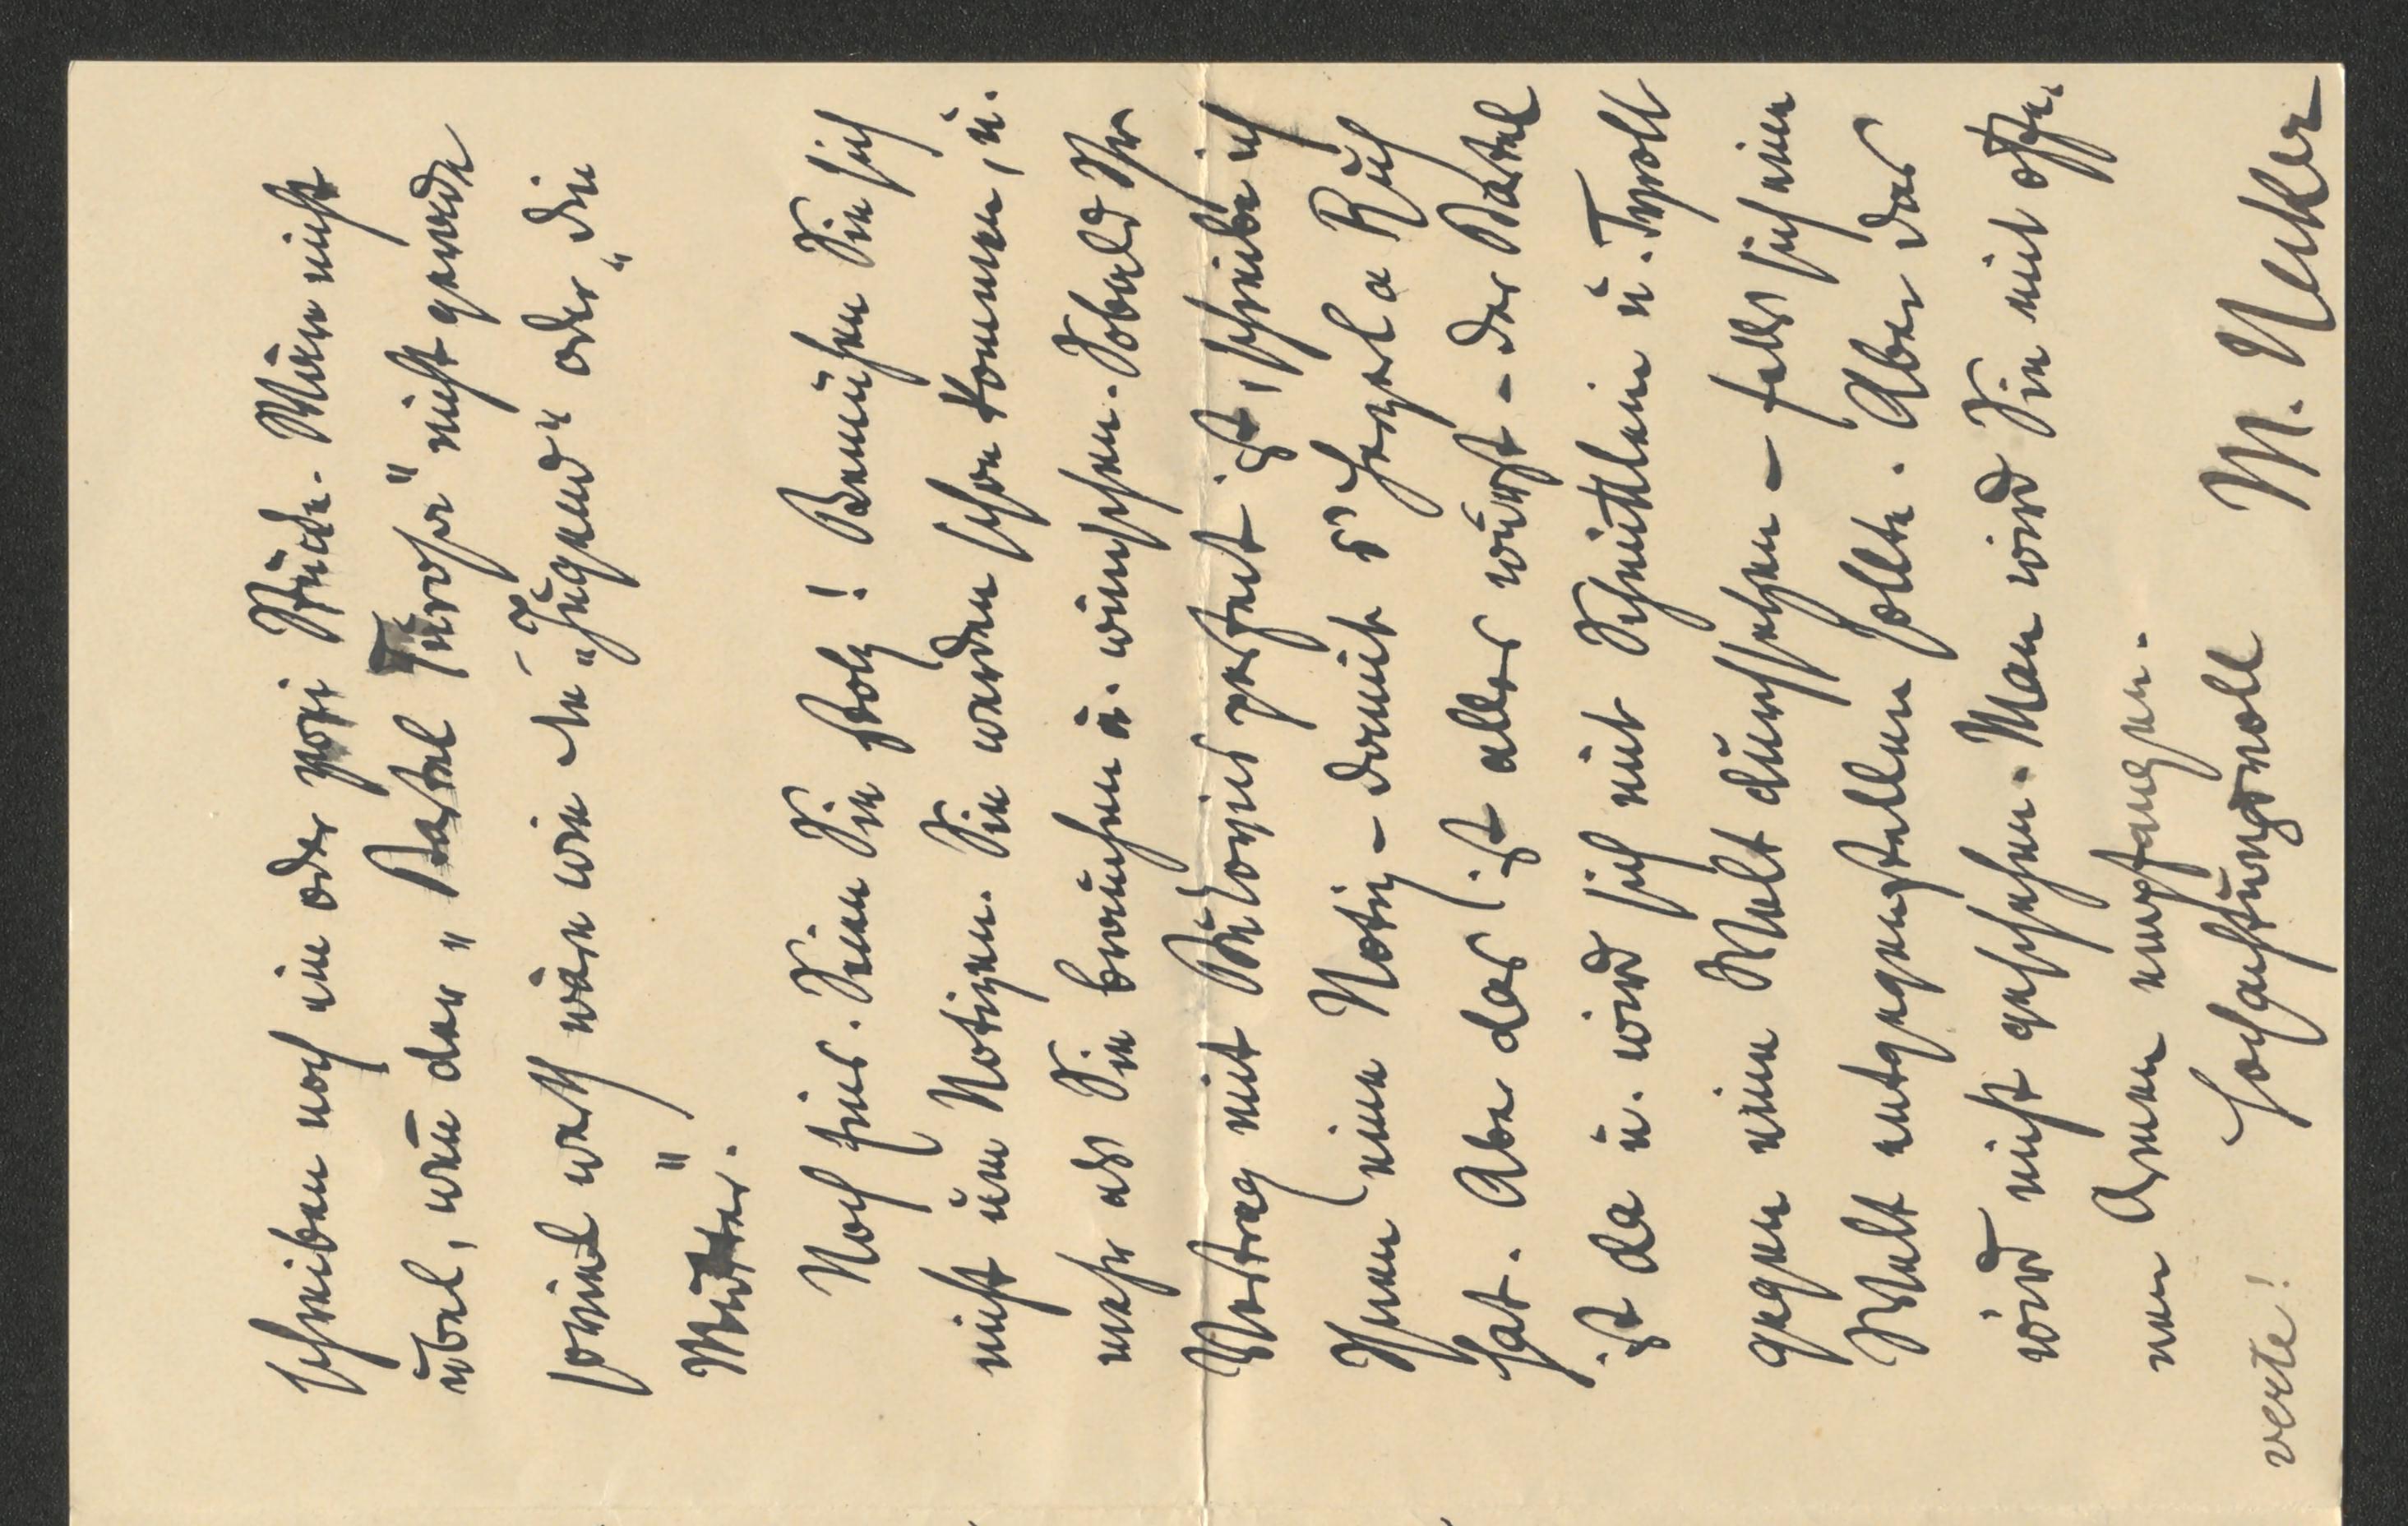 schreiben noch ein oder zwei Stücke. Wäre nicht
übel, wenn der „Bartel Turaser" nicht gerade
soviel werth wäre wie die „Jugend" oder „die
Mütter".
Noch hier. Seien Sie stolz! Bemühen Sie sich
nicht um Notizen. Sie werden schon kommen, u.
mehr als Sie brauchen u. wünschen. Sobald Ihr
Vertrag mit Bukovics perfect ist, schreibe ich
Ihnen eine Notiz – damit d' Seel a Ruh
hat. Aber das ist alles – der Bartel
ist da u. wird sich mit Schnittlein u. Tyrolt
gegen eine Welt durchsetzen – falls sich eine
Welt entgegenstellen sollte. Aber das
wird nicht geschehen. Man wird Sie mit offe-
nen Armen empfangen.
Hochachtungsvoll M. Necker
verte!